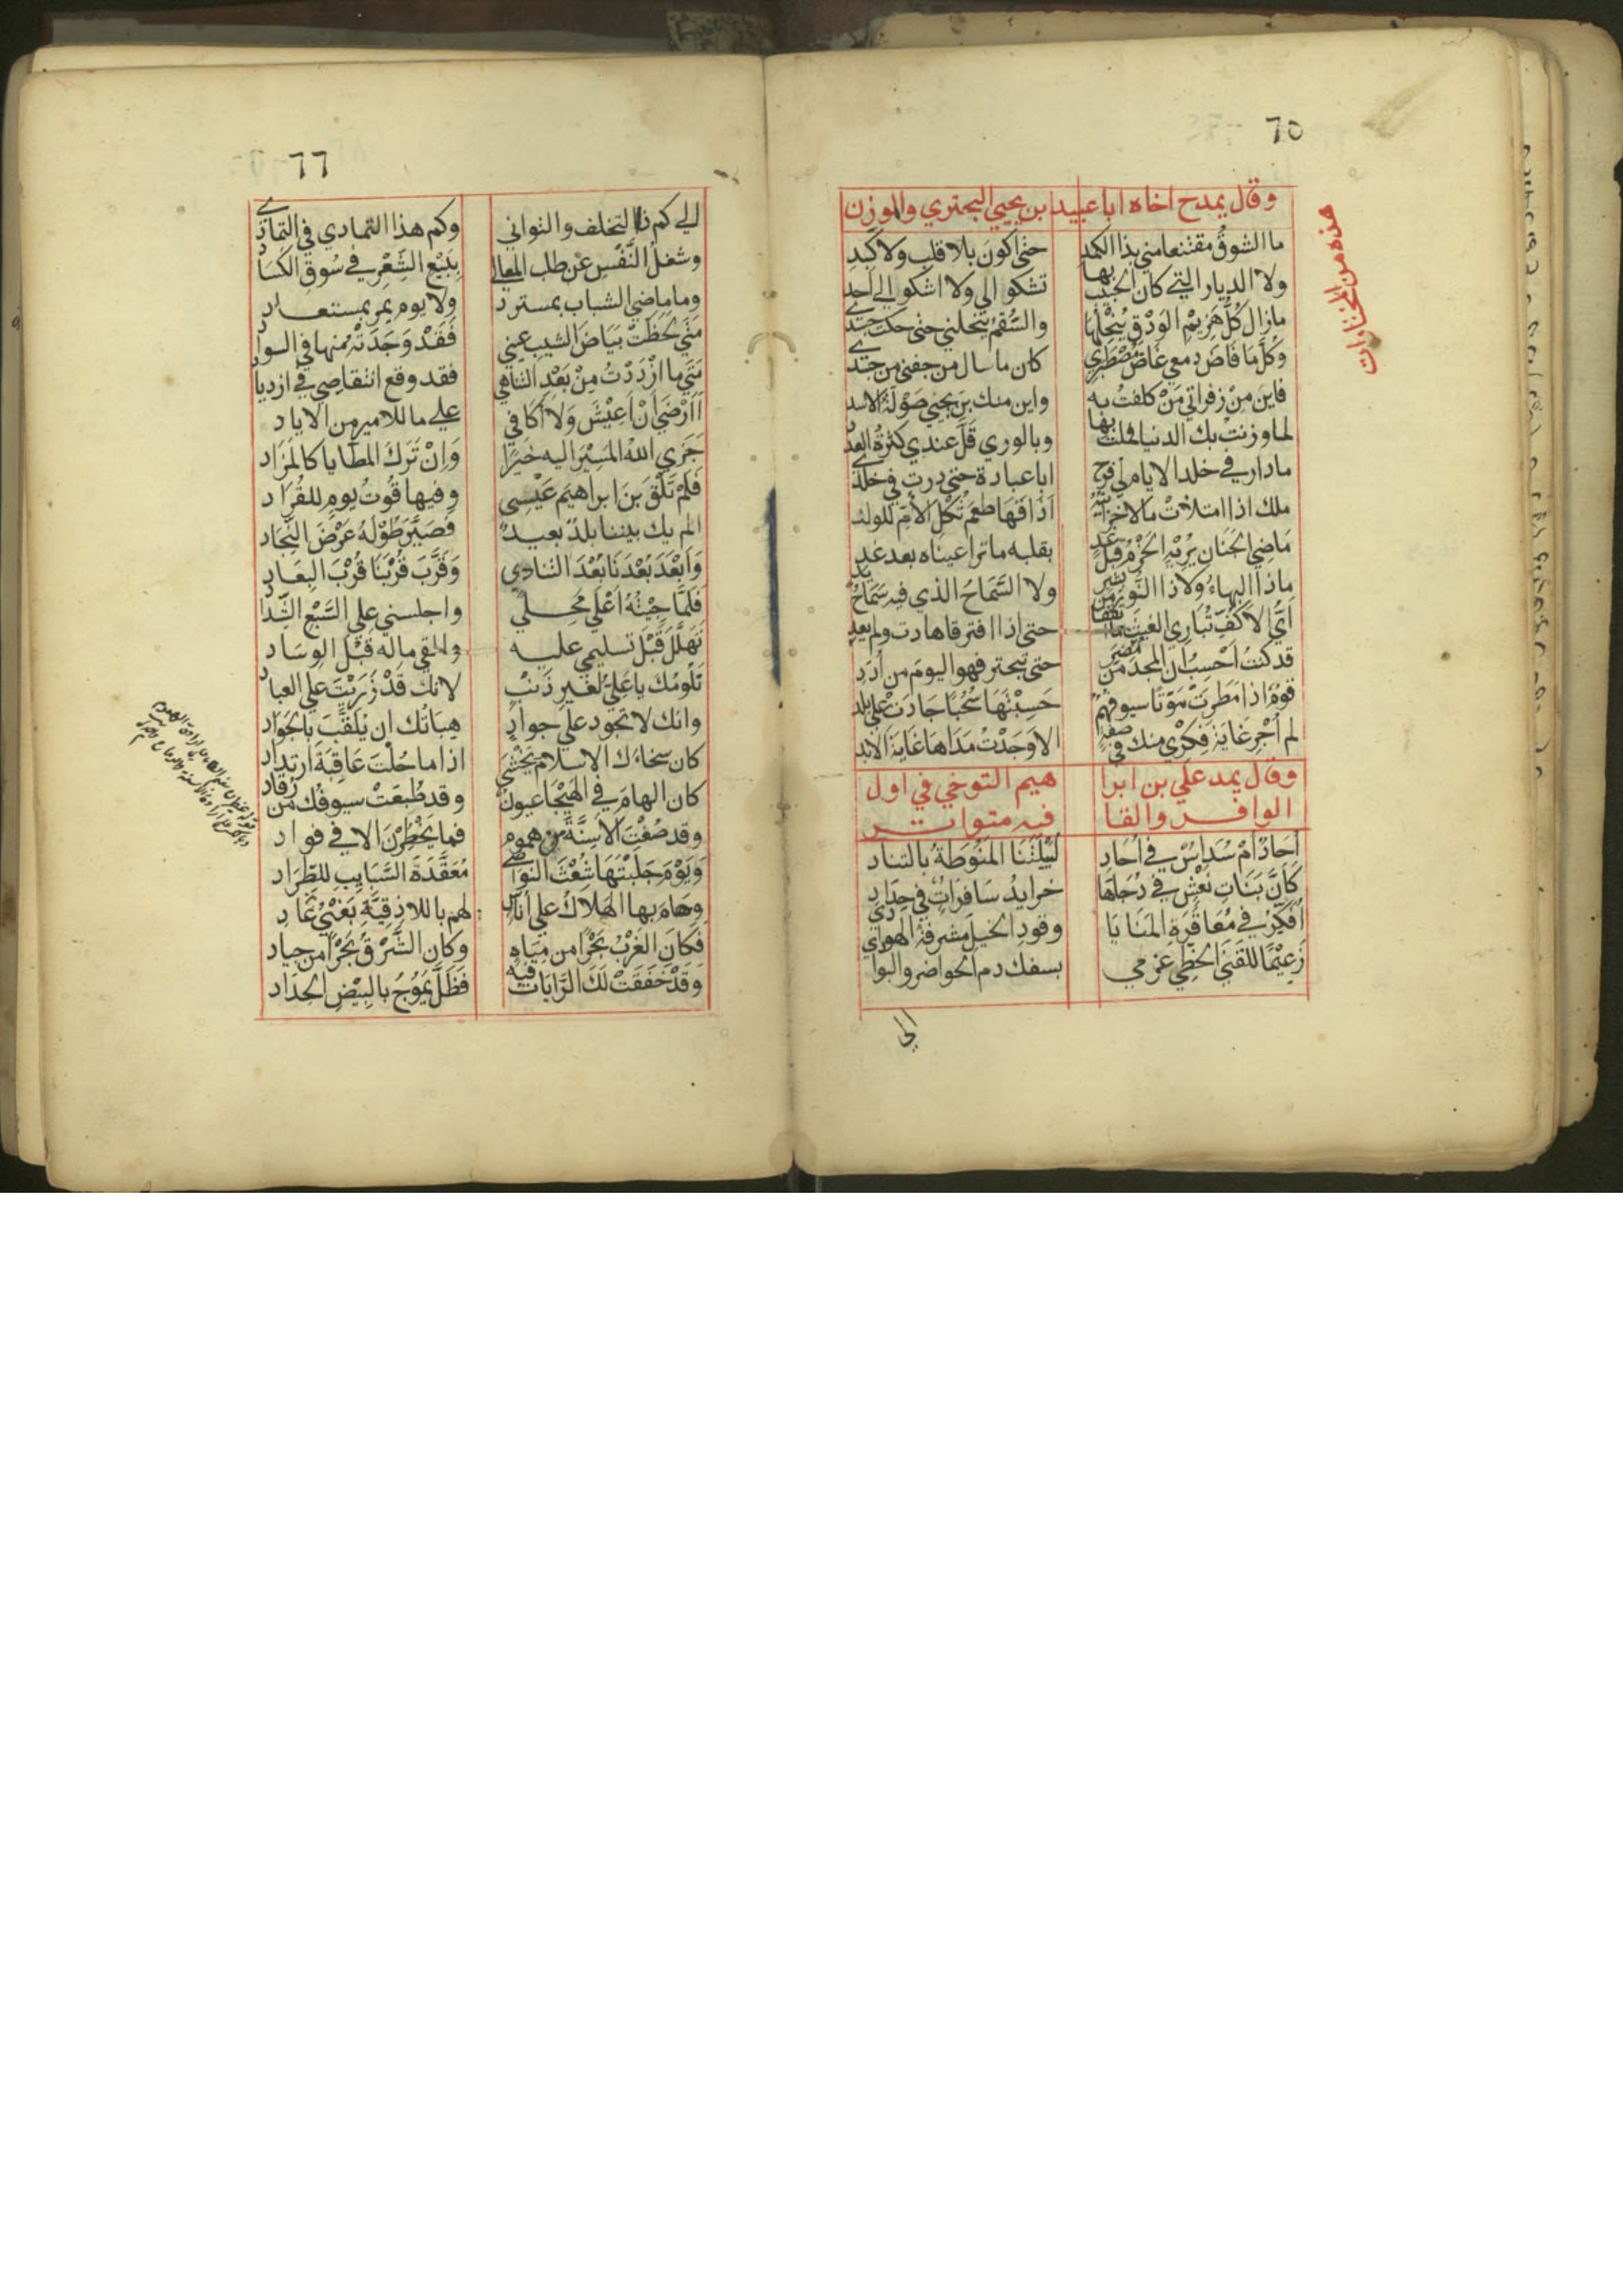 ٦٥
هذه من المختارات
وقال يمدح اخاه ابا عبيد بن يحيي البحتري والوزن
ما الشوقُ مقتنعا مني بذا الكمد حتى اكونَ بلا قلبٍ ولا كَبدِ
ولا الديار التي كان الحبيب بها تشكو الي ولا اشكو الي احد
مازال كُلُّ هَزِيْمِ الوَدْقِ يُنْحِلُهَا والسُّقمُ يُنحلني حتى حكت جسدي
وكُلَّمَا فَاضَ دمعي غَاضَ مُصْطَبَرِي كان ما سال من جفني من جلدي
فاين مِنْ زفراتي مَنْ كلفتُ به واين منك بن يحيي صَوْلَةُ الاسد
لما وزنتُ بك الدنيا فملت بها وبالوري قَلَّ عندي كثرةُ العدد
مادار في خلد الايام لي فرح ابا عبادة حتي درت في خلدي
ملك اذا امتلأتْ مالا خزائنه أذاقها طعمَ ثُكْلِ الأمِّ للولد
مَاضِي الجَنانِ يُرِيْهِ الحَزْمُ قبل غد بقلبه ما ترا عيناه بعد غد
ماذا البهاءُ ولا ذا النور من بشر ولا السَّمَاحُ الذي فيه سَمَاحُ يد
أيُّ الأكُفِّ تُبَارِي الغيثَ ما اتفقا حتى اذا افترقا هادت ولم يعد
قد كنتُ احْسِبُ ان المجد من مضر حتى تبحتر فهو اليومَ من أُدَدِ
قومٌ اذا امْطرتْ مَوْتًا سيوفهمُ حَسِبْتَهَا سُحُبًا جَادَتْ على بلد
لم أُجْرِ غَايَةَ فِكْرِي منك في صفة الا وَجَدْتُ مَدَاهَا غَايَةَ الابد
وقال يمد علي بن ابرا هيم التوخي في اول
الوافر والقا فيه متواتر
أُحَادٌ أمْ سُدَاسٌ في أُحَادِ لُيَيْلَتُنَا المَنُوطَةُ بالتناد
كَأنَّ بَنَاتِ نَعْشٍ في دُجَاهَا خرايدُ سَافراتٌ في حِدَادِ
أُفَكِّرُ في مُعَاقَرَةِ المَنَايَا وقودِ الخيل مشرفة الهوادي
زَعِيْمًا للقَنَى الخَطِّي عزمي بسفك دم الحواضر والبوا
الي
٦٦
الي كم ذا التخلف والتواني وكم هذا التمادي في التمادي
وشغلُ النَّفْسِ عَنْ طلب المعالي بِبَيْعِ الشِّعْرِ في سُوقِ الكَسَادِ
وما ماضي الشباب بمسترد ولا يوم يمر بمستعاد
متى لحظَتْ بَيَاضَ الشيب عيني فَقَدْ وَجَدَتْهُ منها في السواد
متى ما ازْدَدْتُ مِنْ بَعْدِ التناهي فقد وقع انتقاصي في ازدياد
أأرْضَى أنْ اعِيْشَ وَلَا أُكَافِي علي ما للامير من الاياد
جَزَى اللهُ المَسِيْرَ اليه خَيْرًا وَإنْ تَرَكَ المطايا كالمَزَادِ
فَلَمْ تَلْقَ بَنَ ابراهيمَ عَنْسي وفيها قُوتُ يومٍ للقُرَادِ
الم يك بيننا بلدٌ بعيدٌ فَصَيَّرَ طُوْلَهُ عَرْضَ النِّجَادِ
وَأبْعَدَ بُعْدَنَا بُعْدَ التنادي وَقَرَّبَ قُرْبَنَا قُرْبَ البِعَادِ
فَلَمَّا جِيْتُهُ أعْلَى مَحَلي واجلسني علي السَّبْعِ الشِّدَادِ
تَهَلَّلَ قَبْلَ تسليمي عليه والقي ماله قَبْلَ الوِسَادِ
نَلُومُكَ يا عَلِيُّ لغير ذَنْبٍ لانك قَدْ زَرَيْتَ علي العباد
وانك لا تجود علي جوادٍ هِبَاتُك ان يُلَقَّبَ بالجَوَاد
كان سخاءك الاسلام تَخْشَى اذا ما حُلْتَ عَاقِبَةَ ارتداد
كان الهامَ في الهَيْجَا عيونٌ وقد طُبِعَتْ سيوفُك من رُقَاد
وقد صُغْتَ الأسِنَّةَ من هموم فما يَخْطُرْنَ الا في فواد
وَيَوْمَ جَلَبْتَهَا شُعْثَ النواصي مُعَقَّدَةَ السَّبَايبِ للطِّرَاد
وحَامَ بها الهَلَاكُ علي أناس لهم باللاذِقِيَّةِ بَغْيُ عَادِ
فَكَانَ الغَرْبُ بَحْرًا من مِيَاهٍ وكان الشَّرْقُ بَحْرًا من جيادِ
وَقَدْ خَفَقَتْ لَكَ الرَّايَاتُ فيه فَظَلَّ يَمُوْجُ بالبِيْضِ الحِدَادِ